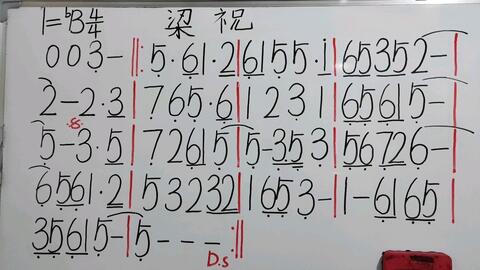 1=ᵇB 4/4 梁 祝
0 0 3 - ‖: 5 · 6 1 · 2 | 6 1 5 5 · i | 6 5 3 5 2 - |
2 - 2 · 3 | 7 6 5 · 6 | 1 2 3 1 | 6 5 6 1 5 - |
.S.
5 - 3 · 5 | 7 2 6 1 5 | 5 - 3 5 3 | 5 6 7 2 6 - |
6 5 6 1 · 2 | 5 3 2 3 2 | 1 6 5 3 - | 1 - 6 1 6 5 |
3 5 6 1 5 - | 5 - - - :‖
D.s